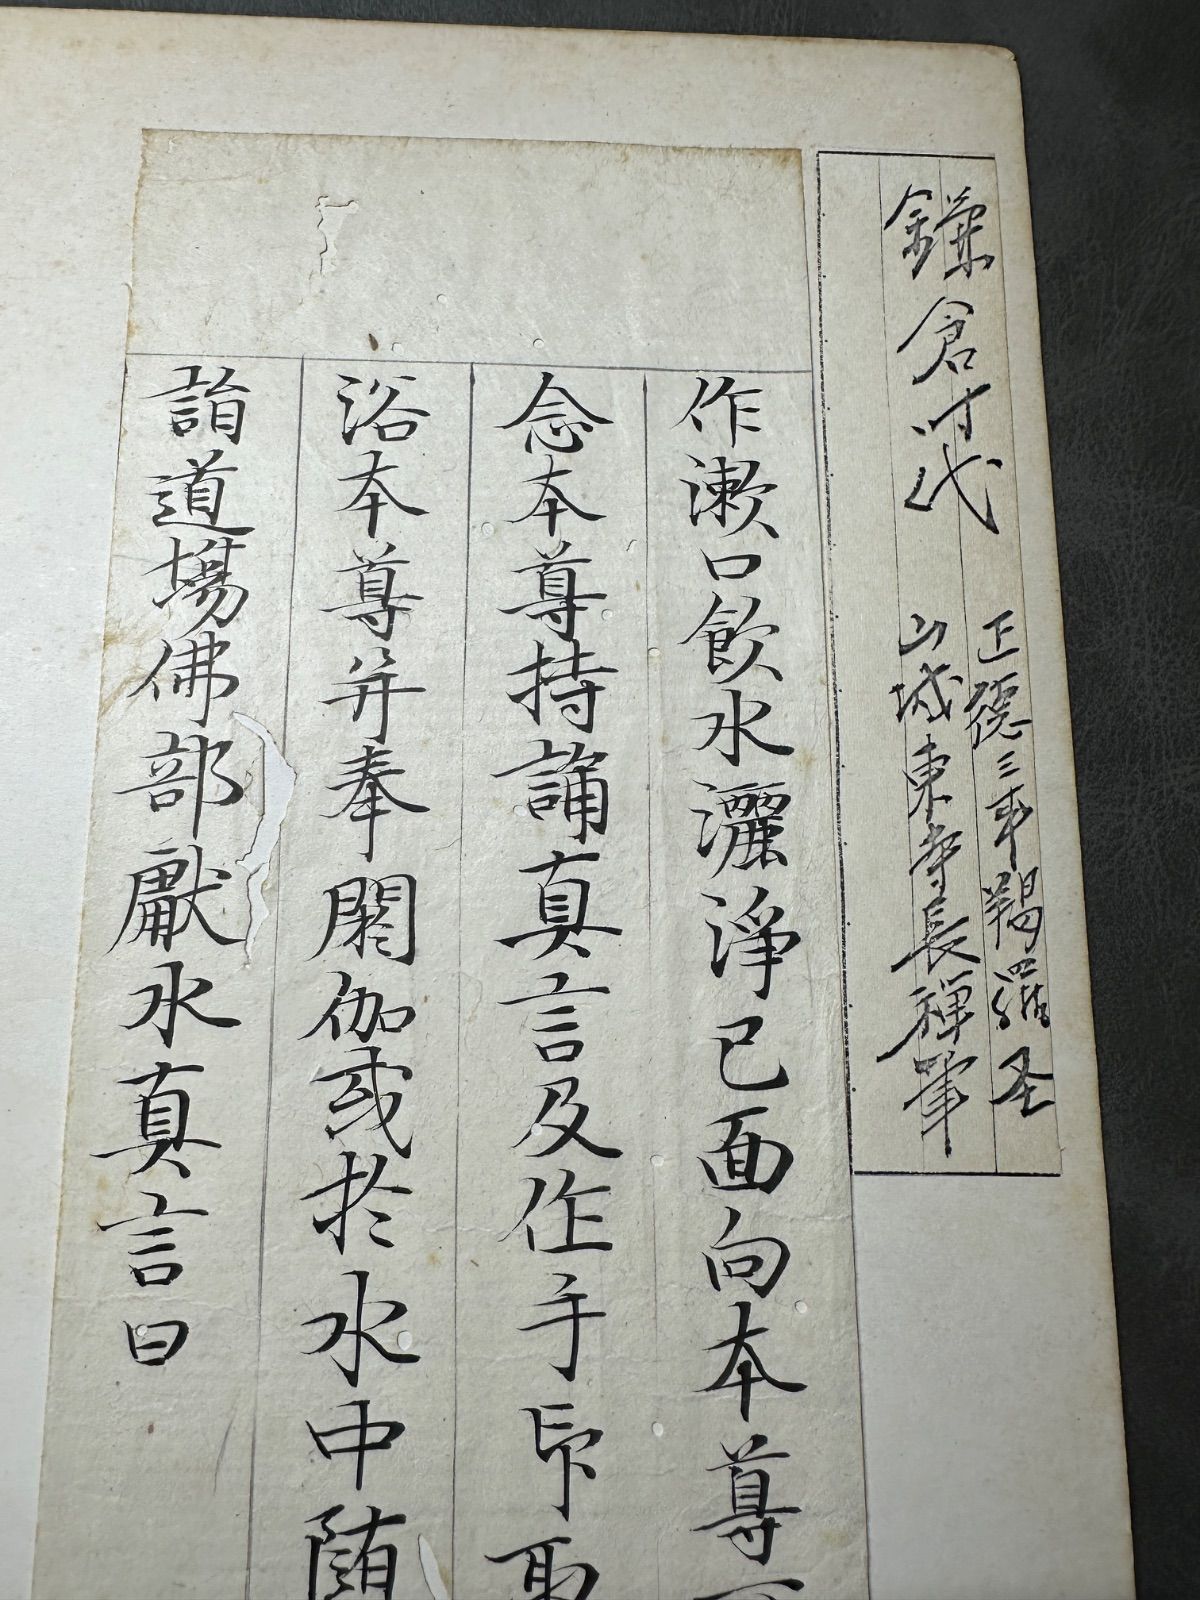 鎌倉时代
正德三年羯羅圣
山城東寺長禅筆
作漱口飲水灑淨已面向本尊
念本尊持誦真言及作手印取
浴本尊并奉閼伽或於水中随
詣道場佛部獻水真言曰